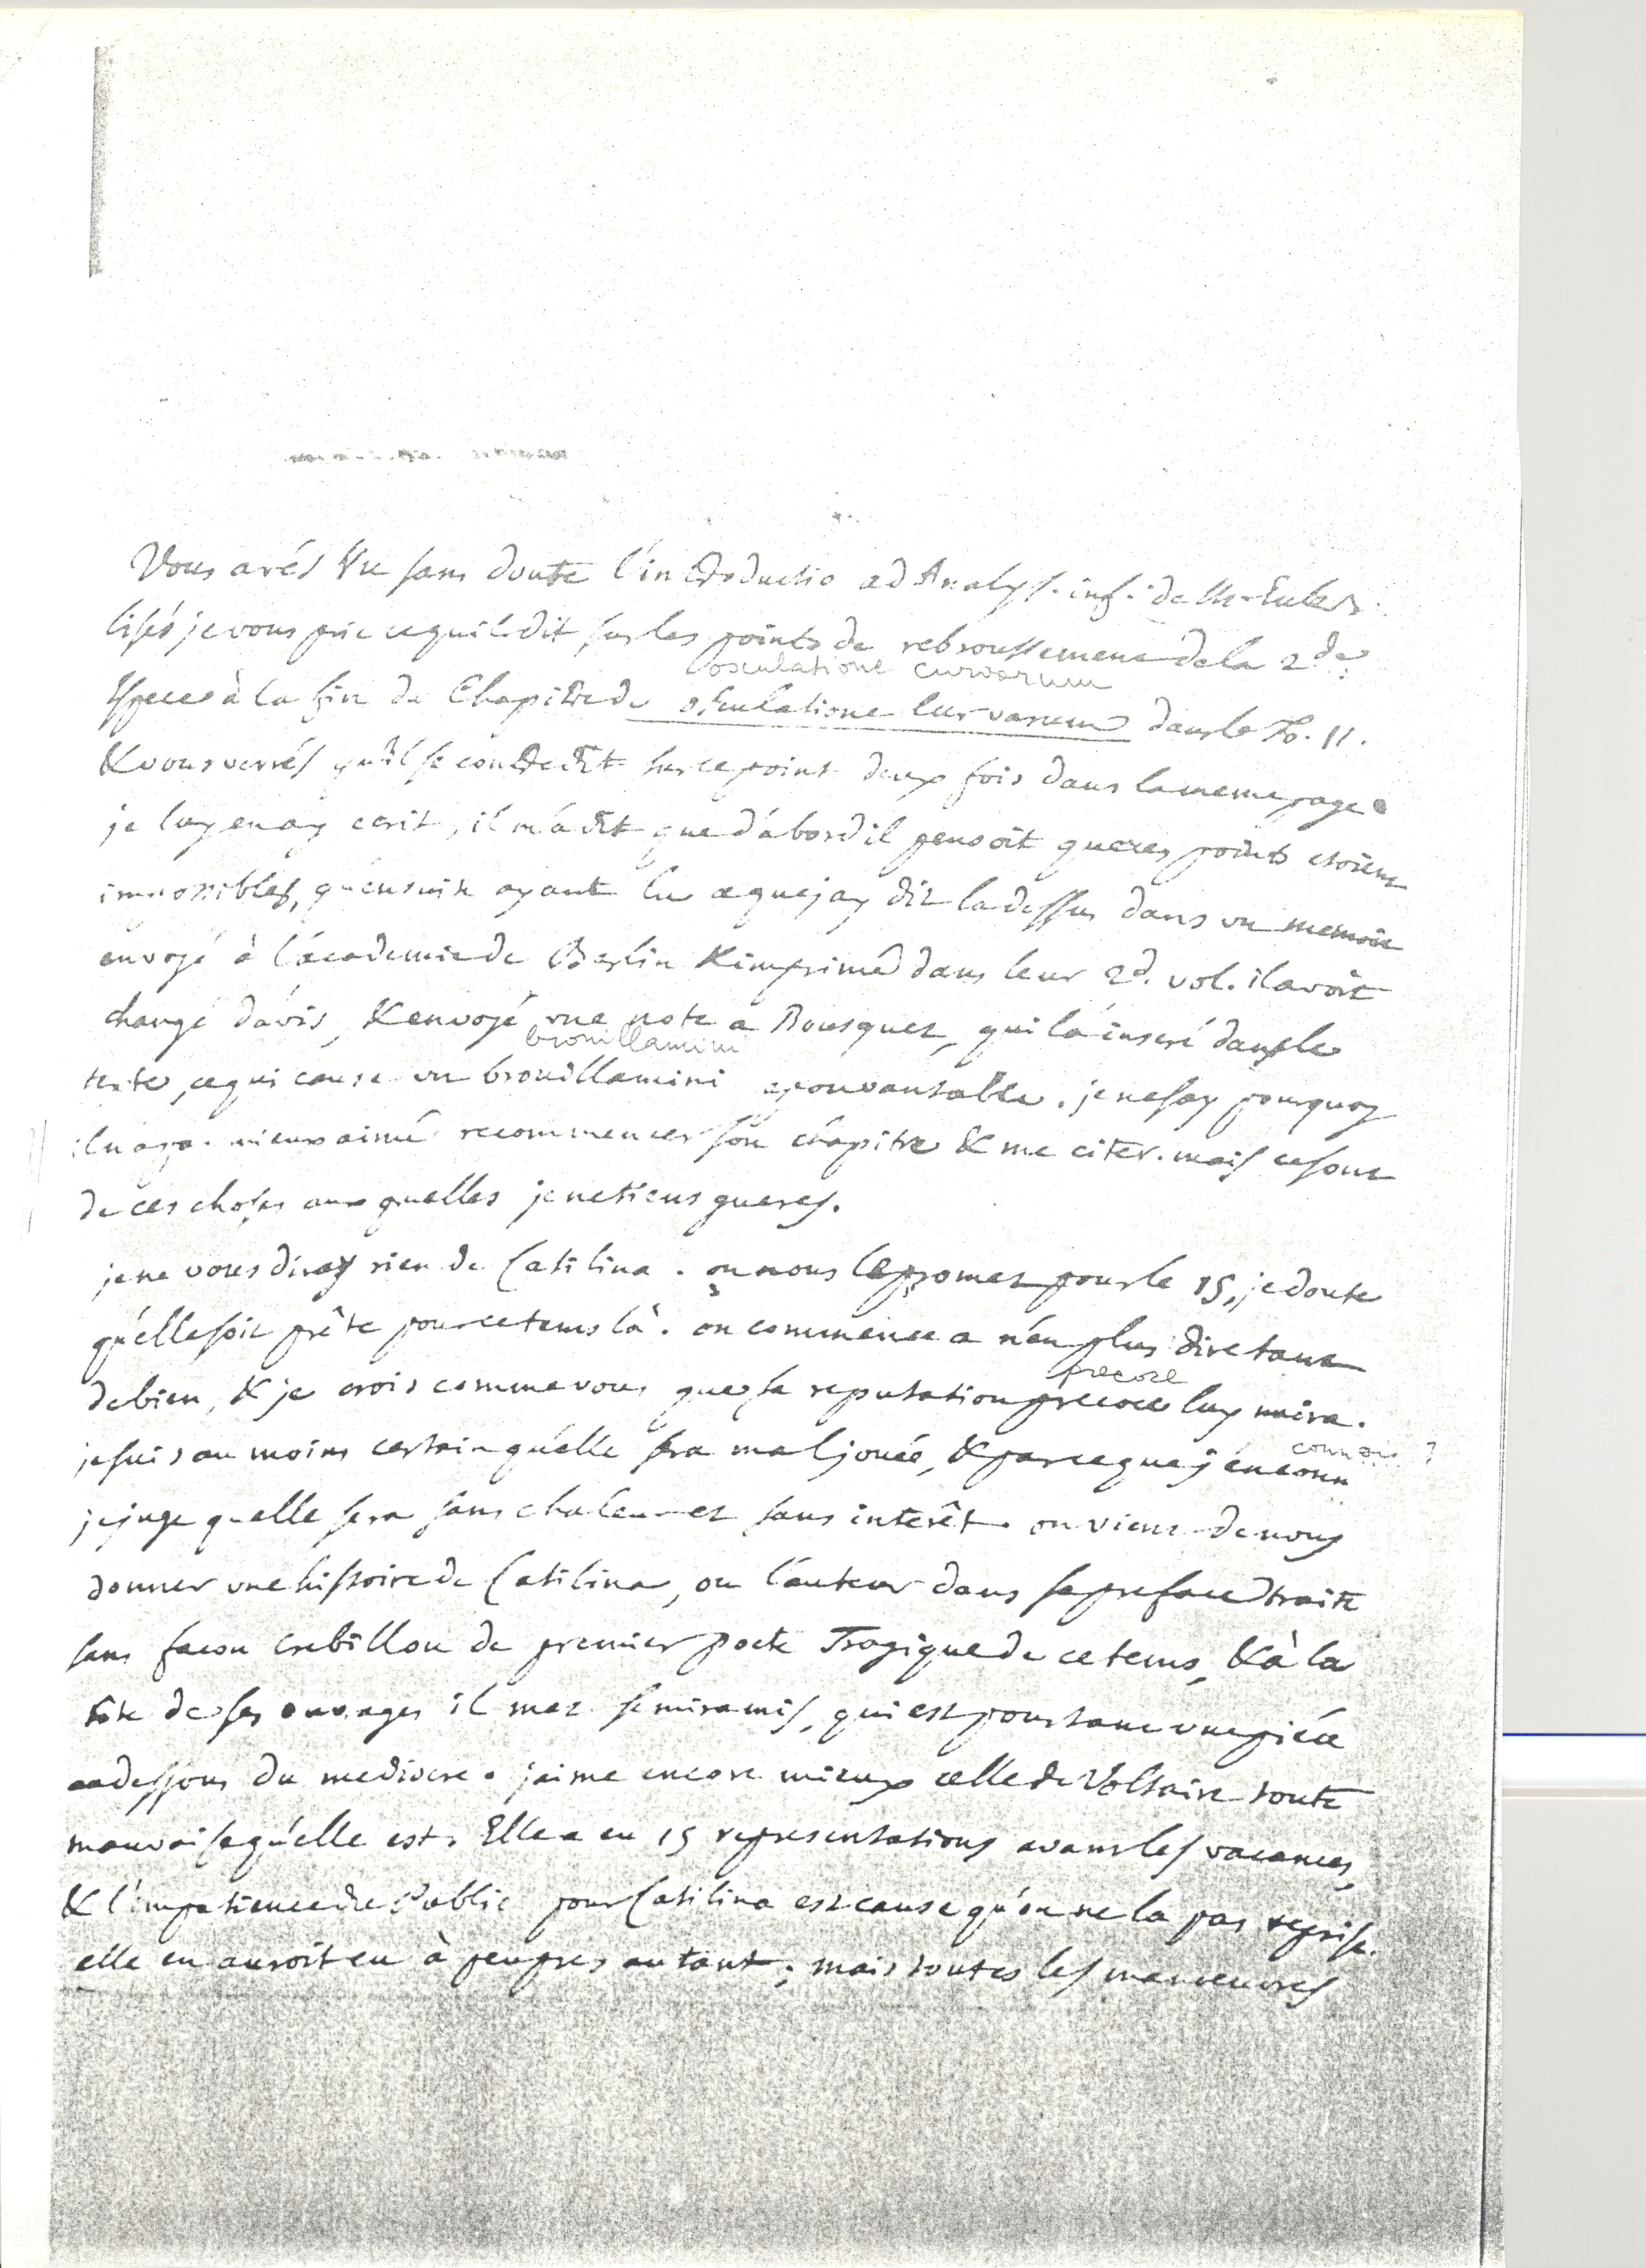 Vous avés Vu sans doute l'introductio ad Analys. inf. de Mr. Euler.
lisés je vous prie ce qu'il dit sur les points de rebroussement de la 2de.
osculatione curvarum
Espece à la fin du Chapitre de osculatione Curvarum dans le To. II.
& vous verrés qu'il se contredit sur ce point deux fois dans la meme page.
je luy en ay ecrit, il m'a dit que d'abord il pensoit que ces points etoient
impossibles, qu'ensuite ayant lu ce que j'ay dit la dessus dans un memoire
envoyé à l'academie de Berlin & imprimé dans leur 2d. vol. il avoit
changé d'avis, & envoyé une note a Bousquet, qui l'a inseré dans le
brouillamini
texte, ce qui cause un brouillamini epouvantable. je ne say pourquoy
il n'a pas mieux aimé recommencer son chapitre & me citer. mais ce sont
de ces choses aux quelles je ne tiens gueres.
je ne vous diray rien de Catilina. on nous le promet pour le 15, je doute
qu'elle soit prête pour ce tems là. on commence a n'en plus dire tant
precoce
de bien, & je crois comme vous que sa reputation precoce luy nuira.
connois ?
je suis au moins certain qu'elle sera mal jouée, & par ce que j'en conn
je juge qu'elle sera sans chaleur et sans intérêt. on vient de nous
donner une histoire de Catilina, ou l'auteur dans sa preface traite
sans facon Crebillon de premier poete Tragique de ce tems, & à la
tête de ses ouvrages il met Semiramis, qui est pourtant une piéce
au dessous du mediocre. j'aime encore mieux celle de Voltaire toute
mauvaise qu'elle est. Elle a eu 15 representations avant les vacances,
& l'impatience du Public pour Catilina est cause qu'on ne l'a pas reprise.
elle en auroit eu à peu pres autant; mais toutes les manœuvres